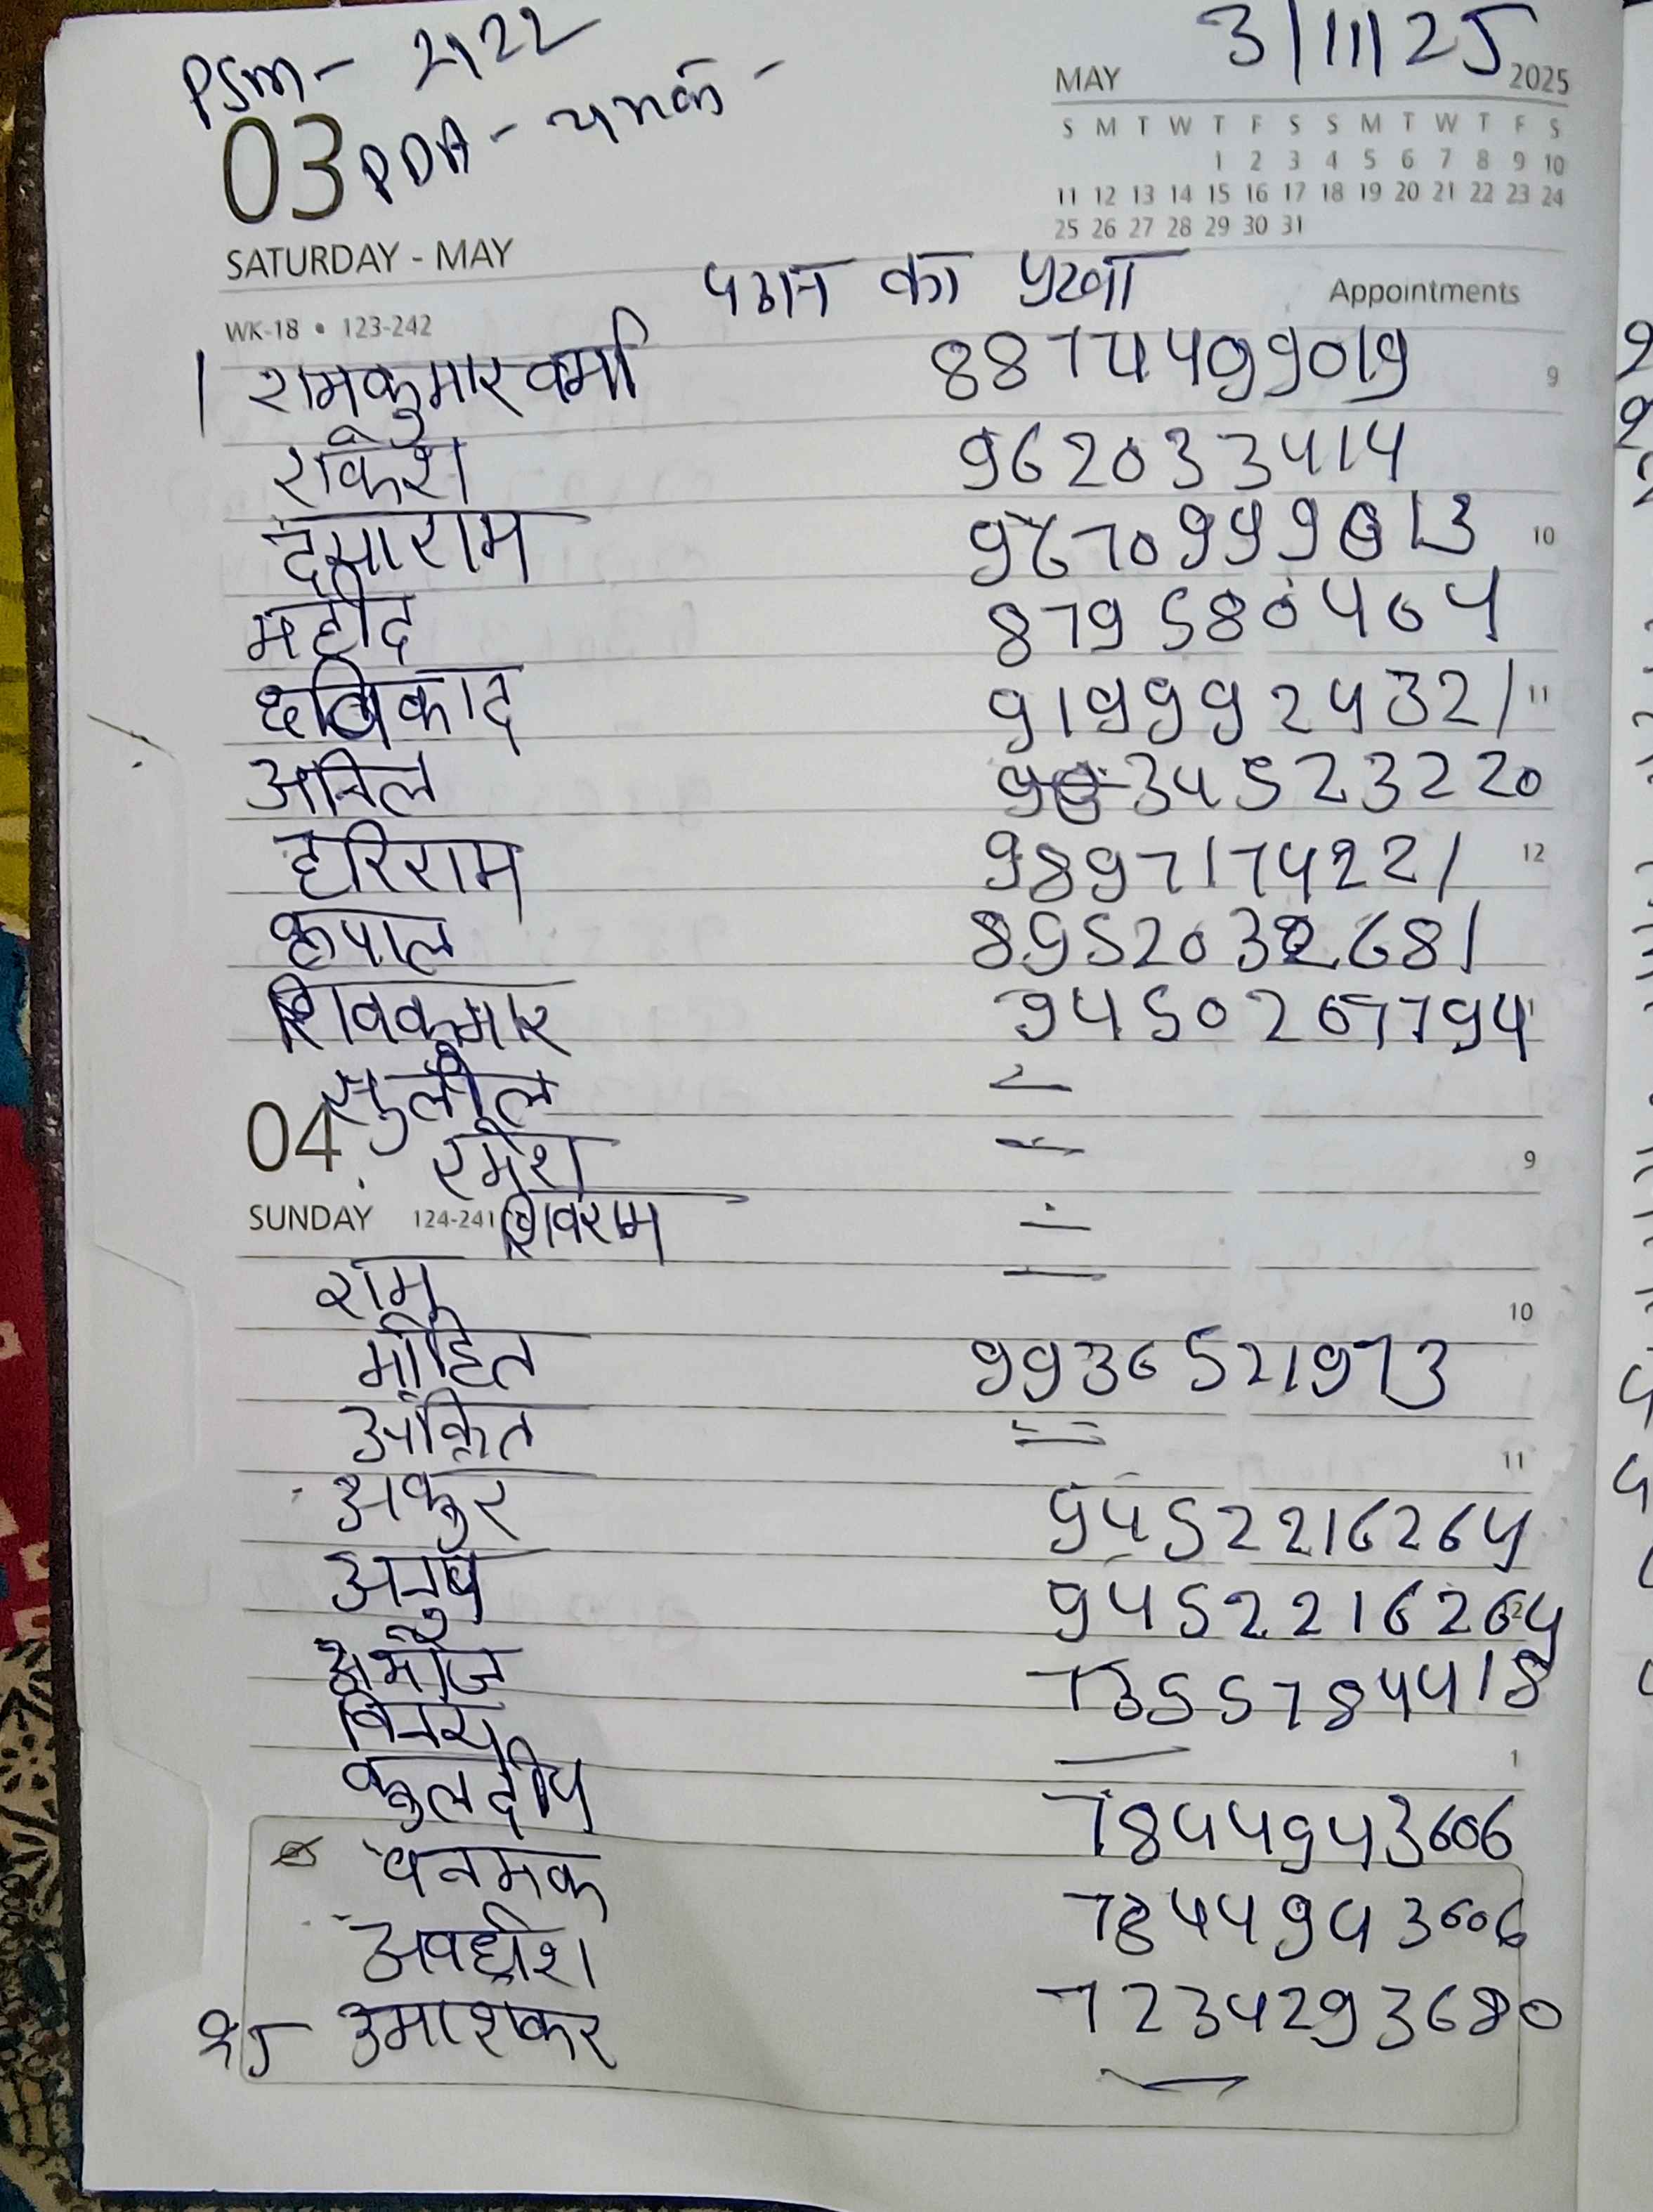 3/11/25
PSM - 2122
PDA -
MAY 2025
S M T W T F S S M T W T F S
1 2 3 4 5 6 7 8 9 10
11 12 13 14 15 16 17 18 19 20 21 22 23 24
25 26 27 28 29 30 31
03
SATURDAY - MAY
का पुरवा
Appointments
WK-18 • 123-242
1 रामकुमार वर्मा 8874499019
9
राकेश 9620333414
10
महीद 879580464
9199924321
11
अनिल 9345223220
हरिराम 9897174221
12
कृपाल
शिवकुमार 9450267794
सुलील —
04
रमेश —
9
SUNDAY 124-241 शिवराम —
रामू —
10
मोहित 9936521973
अंकित =
11
अंकुर 9452216264
अनुप 9452216264
अमोज 7355784418
विनय —
1
कुलदीप 7844943606
7844943606
अवधेश 7234293680
25 उमाशंकर —